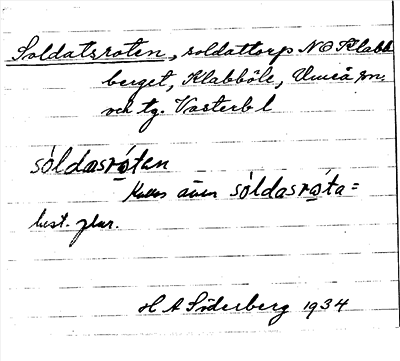 Soldatsroten, soldattorp NO Klabb
berget, Klabböle, Umeå sn.
och tg. Västerb l
sóldasrótan
Kallas även sóldasróta=
best. plur.
H A Söderberg 1934